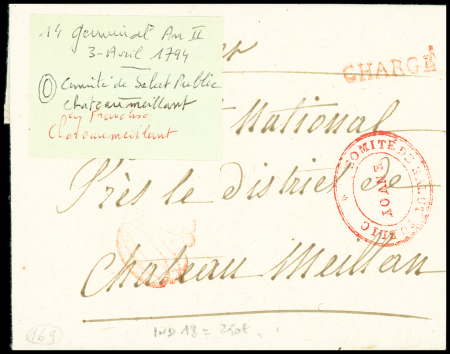 14 germinal An II
3-Avril 1794
Comité de Salut Public
chateaumeillant
en Franchise
Chateaumeillant
CHARGÉ
National
COMITÉ DE SALUT PUBLIC
Près le district de
Chateau Meillan
169
IND 18 =